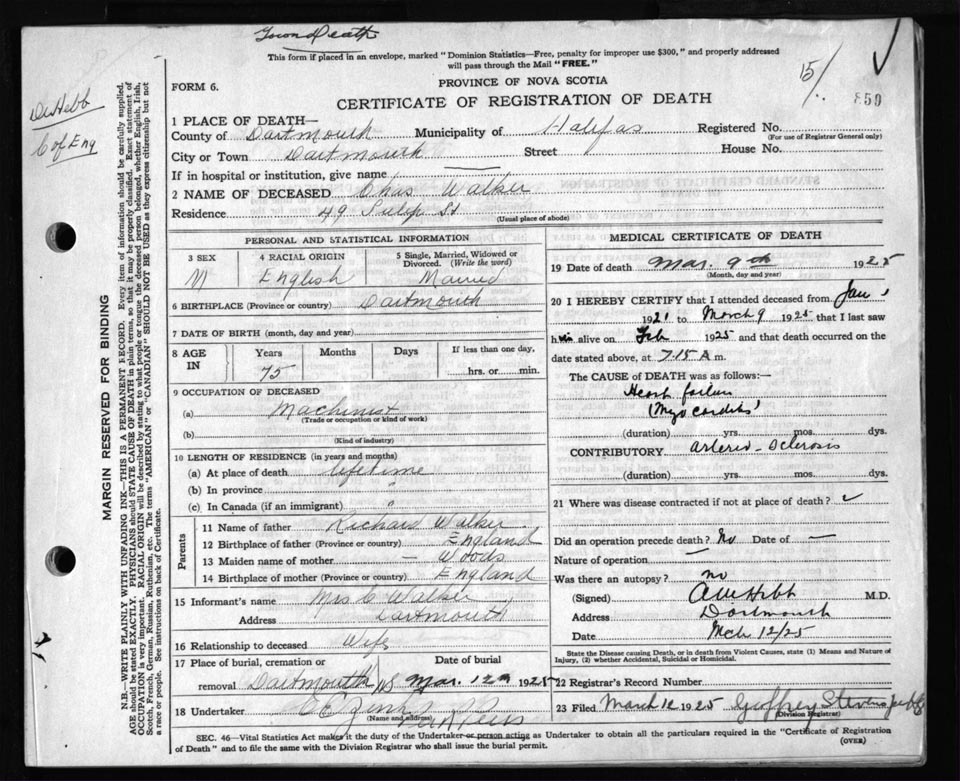 Town Death
This form if placed in an envelope, marked "Dominion Statistics—Free, penalty for improper use $300," and properly addressed
will pass through the Mail "FREE."
FORM 6.
PROVINCE OF NOVA SCOTIA
CERTIFICATE OF REGISTRATION OF DEATH
15/
850
Dr Hebb
C of Eng
1 PLACE OF DEATH—
County of Dartmouth Municipality of Halifax Registered No.
(For use of Registrar General only)
City or Town Dartmouth Street House No.
If in hospital or institution, give name
2 NAME OF DECEASED Chas Walker
Residence 49 St
(Usual place of abode)
MARGIN RESERVED FOR BINDING
N.B.—WRITE PLAINLY WITH UNFADING INK—THIS IS A PERMANENT RECORD. Every item of information should be carefully supplied.
AGE should be stated EXACTLY. PHYSICIANS should STATE CAUSE OF DEATH in plain terms, so that it may be properly classified. Exact statement of
OCCUPATION is very important. RACIAL ORIGIN will be described by stating to what people or tongue the deceased person belonged, whether English, Irish,
Scotch, French, German, Russian, Ruthenian, etc. The terms "AMERICAN" or "CANADIAN" SHOULD NOT BE USED as they express citizenship but not
a race or people. See instructions on back of Certificate.
PERSONAL AND STATISTICAL INFORMATION
3 SEX
M
4 RACIAL ORIGIN
English
5 Single, Married, Widowed or
Divorced. (Write the word)
Married
6 BIRTHPLACE (Province or country) Dartmouth
7 DATE OF BIRTH (month, day and year)
8 AGE IN
Years Months Days If less than one day,
75 hrs. or min.
9 OCCUPATION OF DECEASED
(a) Machinist
(Trade or occupation or kind of work)
(b)
(Kind of industry)
10 LENGTH OF RESIDENCE (in years and months)
(a) At place of death lifetime
(b) In province "
(c) In Canada (if an immigrant) "
Parents
11 Name of father Richard Walker
12 Birthplace of father (Province or country) England
13 Maiden name of mother — Woods
14 Birthplace of mother (Province or country) England
15 Informant's name Mrs C Walker
Address Dartmouth
16 Relationship to deceased Wife
17 Place of burial, cremation or Date of burial
removal Dartmouth NS Mar. 12th 1925
18 Undertaker
(Name and address)
MEDICAL CERTIFICATE OF DEATH
19 Date of death Mar. 9th 1925
(Month, day and year)
20 I HEREBY CERTIFY that I attended deceased from Jan 1
1921 to March 9 1925 that I last saw
him alive on Feb 1925 and that death occurred on the
date stated above, at 7.15 A m.
The CAUSE of DEATH was as follows:—
Heart failure
(Myocarditis)
(duration) yrs. mos. dys.
CONTRIBUTORY arterio-sclerosis
(duration) yrs. mos. dys.
21 Where was disease contracted if not at place of death?
Did an operation precede death? No Date of —
Nature of operation —
Was there an autopsy? no
(Signed) Hebb M.D.
Address Dartmouth
Date Mch 12/25
State the Disease causing Death, or in death from Violent Causes, state (1) Means and Nature of
Injury, (2) whether Accidental, Suicidal or Homicidal.
22 Registrar's Record Number
23 Filed March 12 1925 Geoffrey Stevens
(Division Registrar)
SEC. 46—Vital Statistics Act makes it the duty of the Undertaker or person acting as Undertaker to obtain all the particulars required in the "Certificate of Registration
of Death" and to file the same with the Division Registrar who shall issue the burial permit.
(OVER)